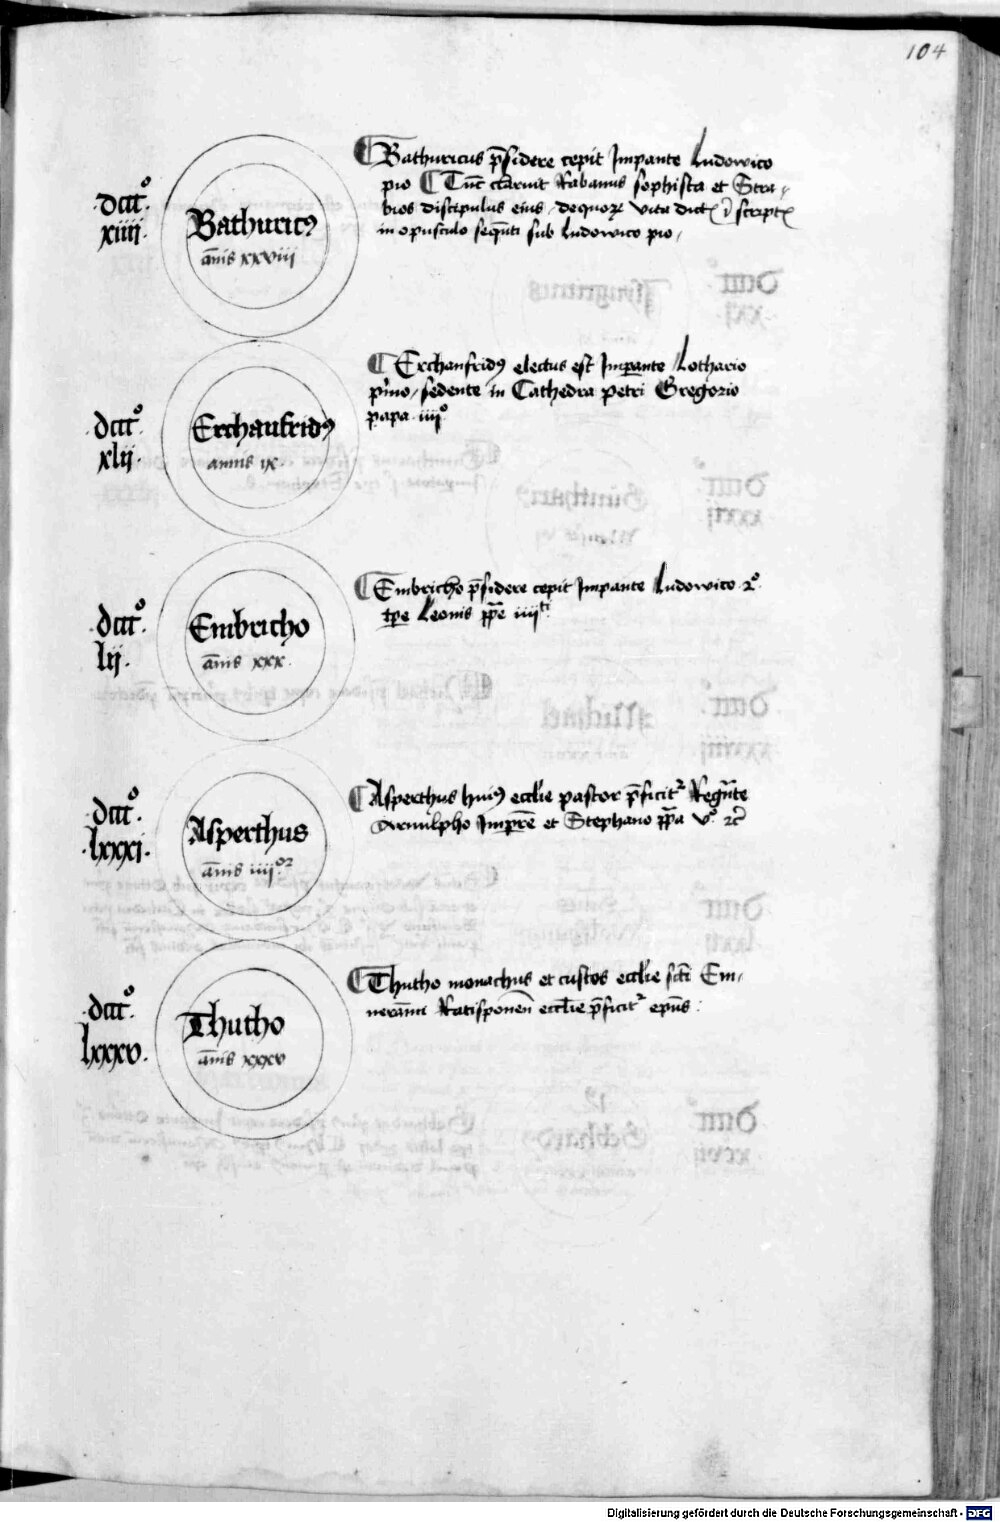 104
dccc°.
xiiii.
Bathuricꝰ
ān̄is xxviii
Bathuricus p̄sidere cepit Impante Ludowico
pio Tūc claruit Rabanus sophista et Stra-
bios discipulus eius, de quoꝝ vita dict ̄ scripte
in opusculo sequēti sub ludowico pio,
dccc°.
xlii.
Erchanfridꝰ
annis ix.
Erchanfridꝰ electus est Imꝑante Lothario
p̄mo, sedente in Cathedra petri Gregorio
papa iiii°.
dccc°.
lii.
Embricho
ān̄is xxx.
Embricho p̄sidere cepit Impante Ludowico 2°.
tꝑe Leonis pp̄e iiii^ti.
.dccc°.
.lxxxi.
Asperthus
ān̄is iiii^or.
Asperthus huiꝰ ecclie pastor p̄ficit^r Regn̄te
Arnulpho Imp̄re et Stephano pp̄a v°. ⁊c̄
.dccc°.
lxxxv.
Thutho
ān̄is xxxv
Thutho monachus et custos ecclie sc̄ti Em-
nerāmi Ratisponen̄ ecclie p̄ficit^r ep̄us.
Digitalisierung gefördert durch die Deutsche Forschungsgemeinschaft - DFG